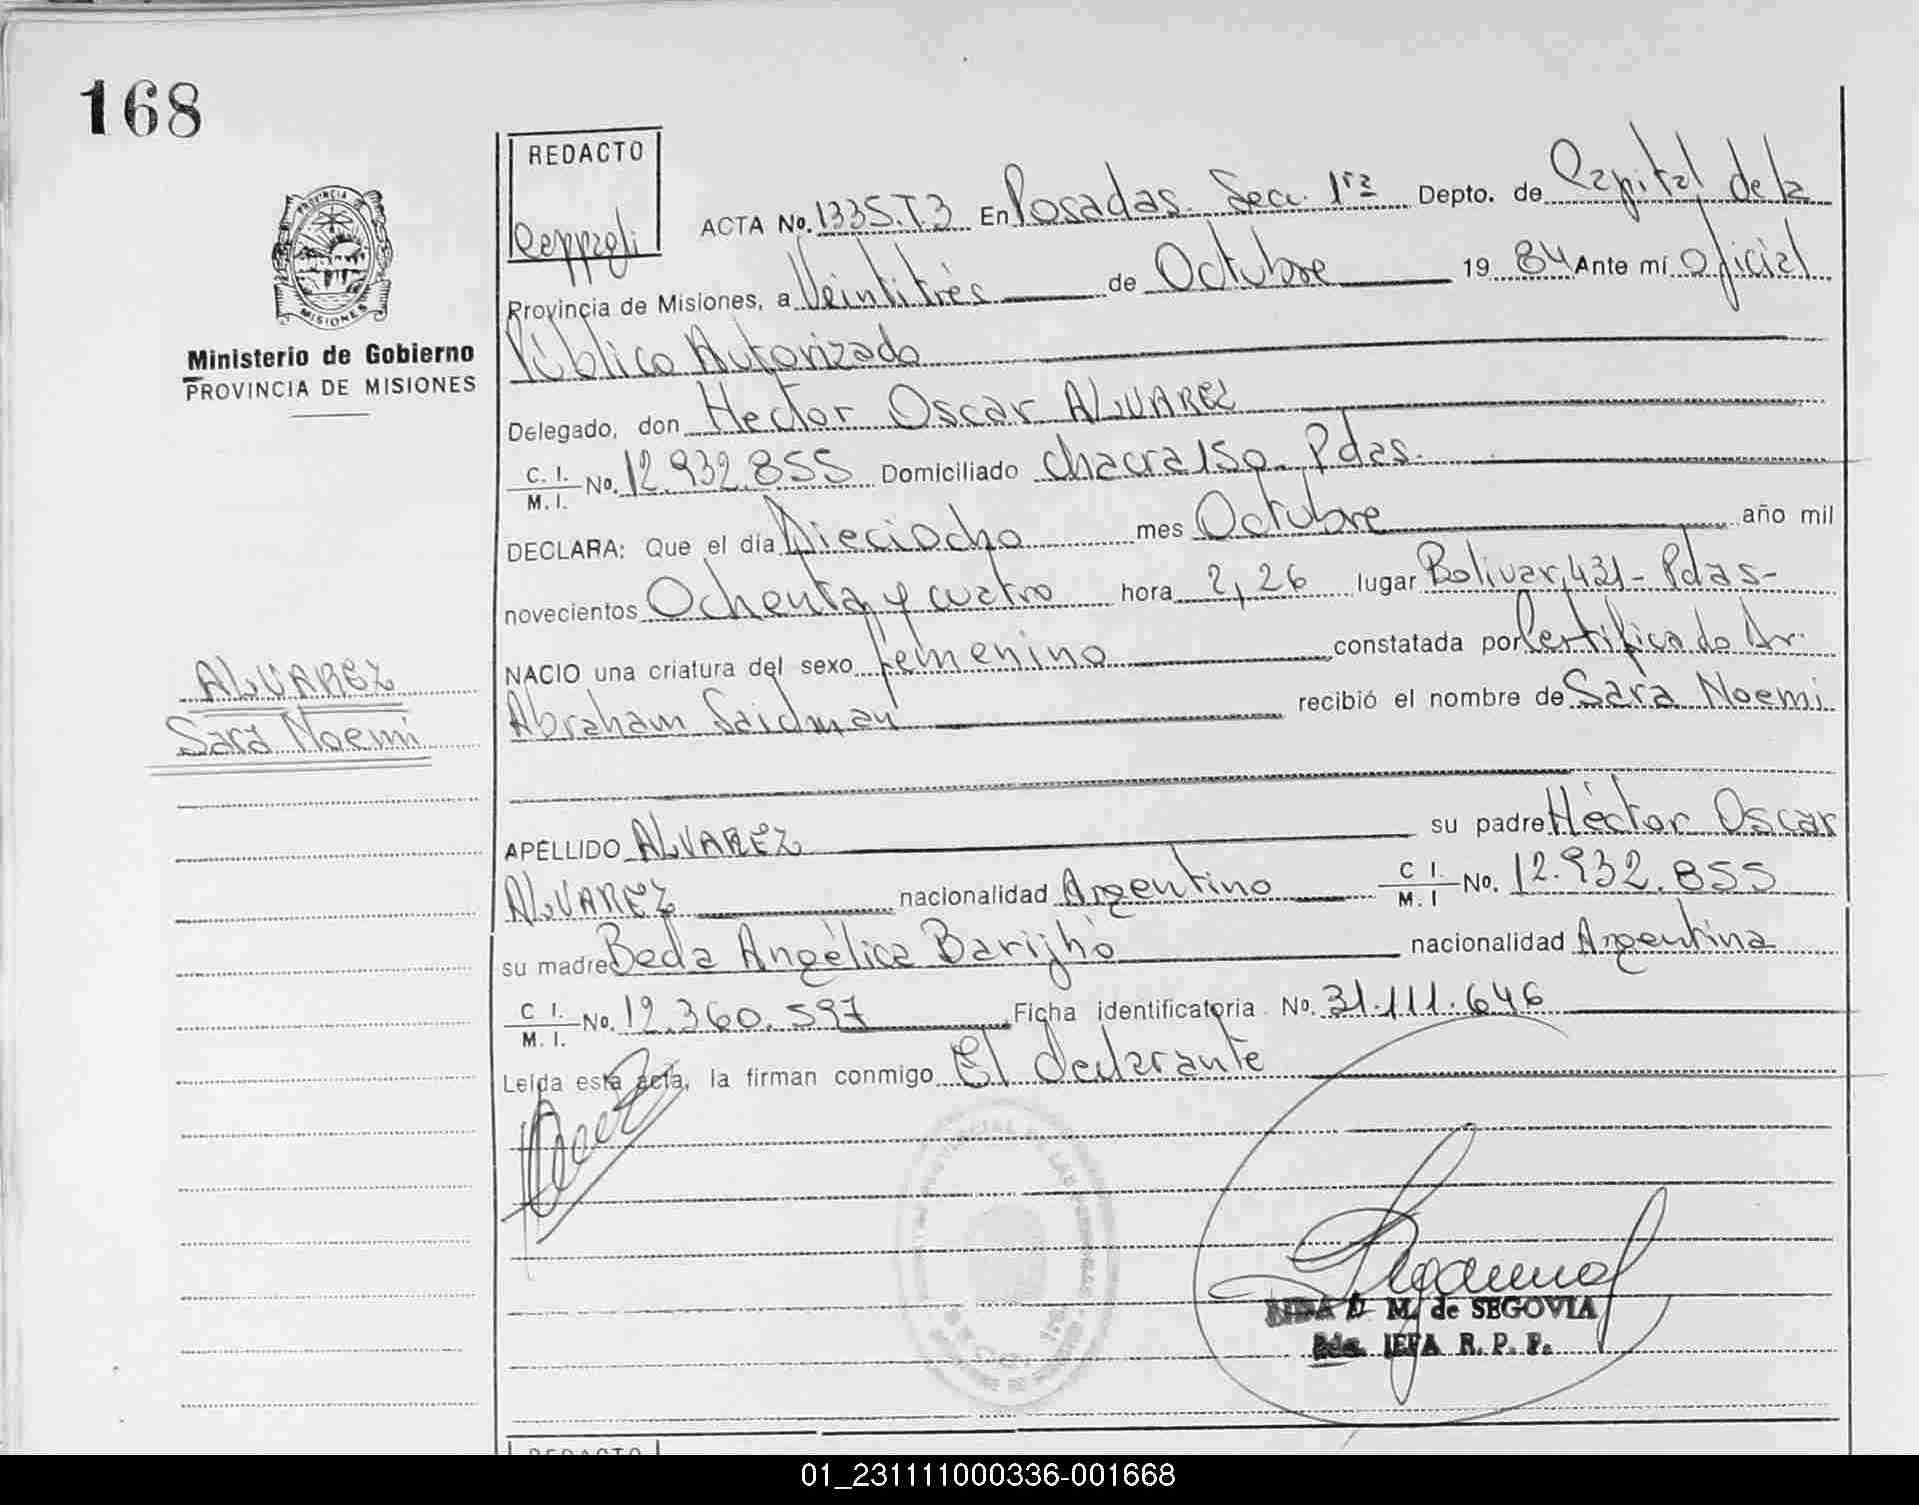 168
REDACTO
ACTA No. 1335.T.3 En Posadas. Secc. 1ra Depto. de Capital de la
PROVINCIA DE
MISIONES
Provincia de Misiones, a Veintitrés de Octubre 19 84 Ante mí Oficial
Ministerio de Gobierno
PROVINCIA DE MISIONES
Público Autorizado
Delegado, don Hector Oscar ALVAREZ
C. I. M. I. No. 12.932.855 Domiciliado chacra 150 Pdas.
DECLARA: Que el día Dieciocho mes Octubre año mil
novecientos Ochenta y cuatro hora 2,26 lugar Bolivar, 431 - Pdas -
NACIO una criatura del sexo femenino constatada por Certificado Dr.
ALVAREZ
Sara Noemi
Abraham Saidman recibió el nombre de Sara Noemi
APELLIDO ALVAREZ su padre Héctor Oscar
ALVAREZ nacionalidad Argentino C I. M. I No. 12.932.855
su madre Beda Angélica Barijho nacionalidad Argentina
C I. M. I. No. 12.360.597 Ficha identificatoria No. 31.111.646
Leída esta acta, la firman conmigo El declarante
M. de SEGOVIA
JEFA R. P. P.
REDACTO
01_231111000336-001668